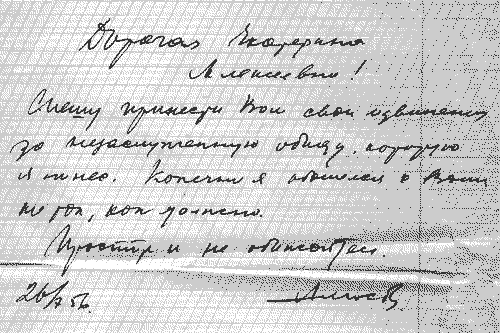 Дорогая Екатерина
Алексеевна!
Спешу принести Вам свои извинения
за незаслуженную обиду, которую
я нанес. Конечно я обошелся с Вами
не так, как должно.
Простите и не обижайтесь.
26/X 56.